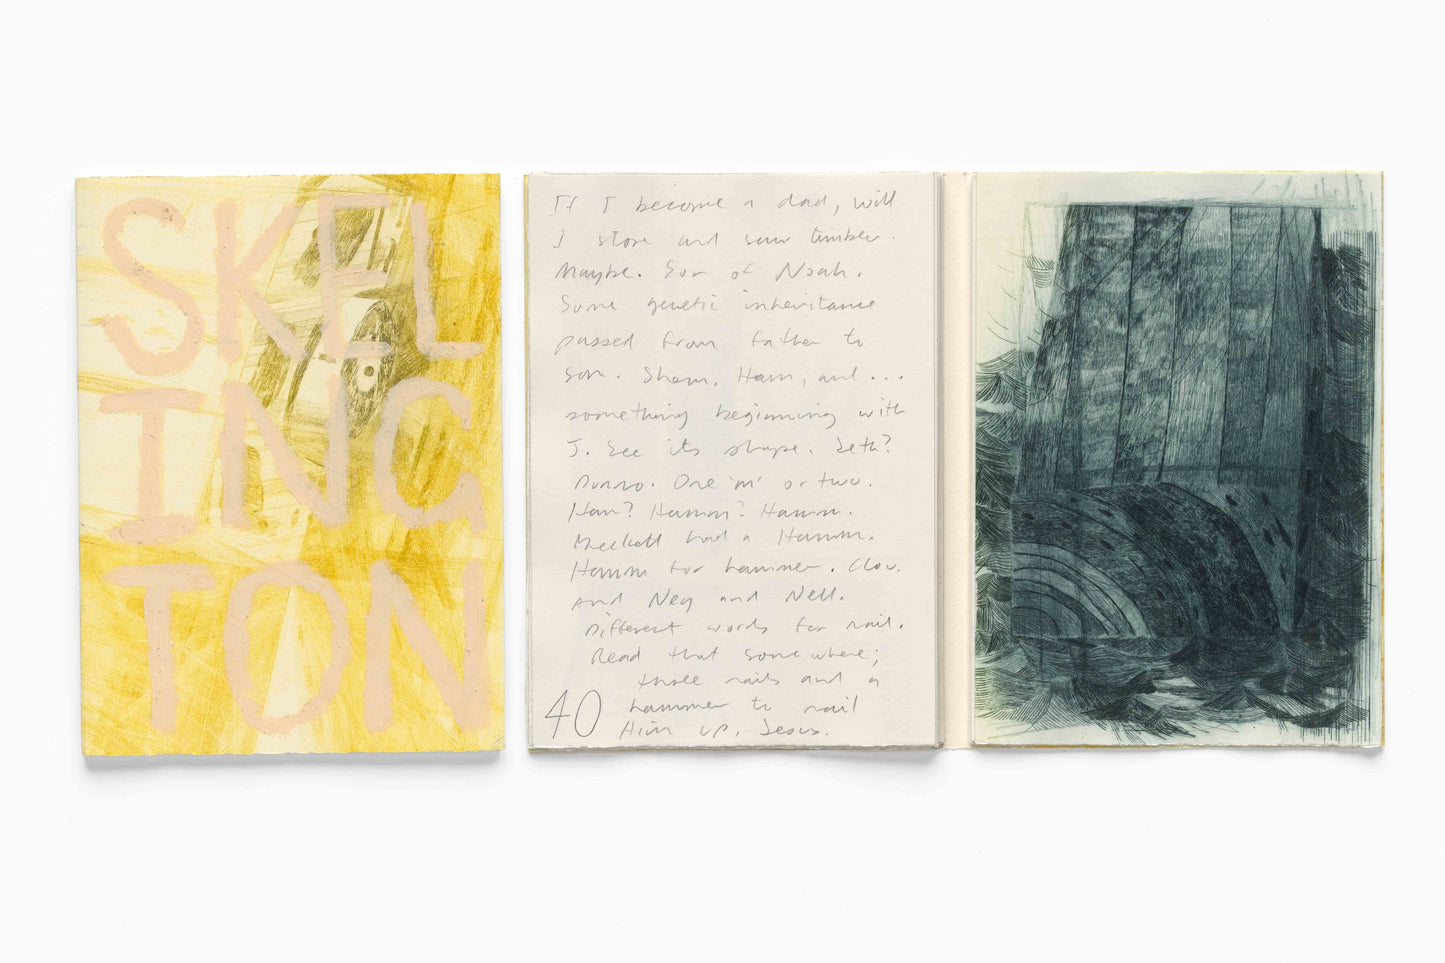 SKEL
ING
TON
If I become a dad, will
I store and saw timber.
Maybe. Son of Noah.
Some genetic inheritance
passed from father to
son. Shem, Ham, and...
something beginning with
J. See its shape. Seth?
Dunno. One 'm' or two.
Ham? Hamm? Hamm.
Beckett had a Hamm.
Hamm for hammer. Clov.
and Neg and Nell.
Different words for nail.
Read that somewhere;
three nails and a
hammer to nail
Him up, Jesus.
40